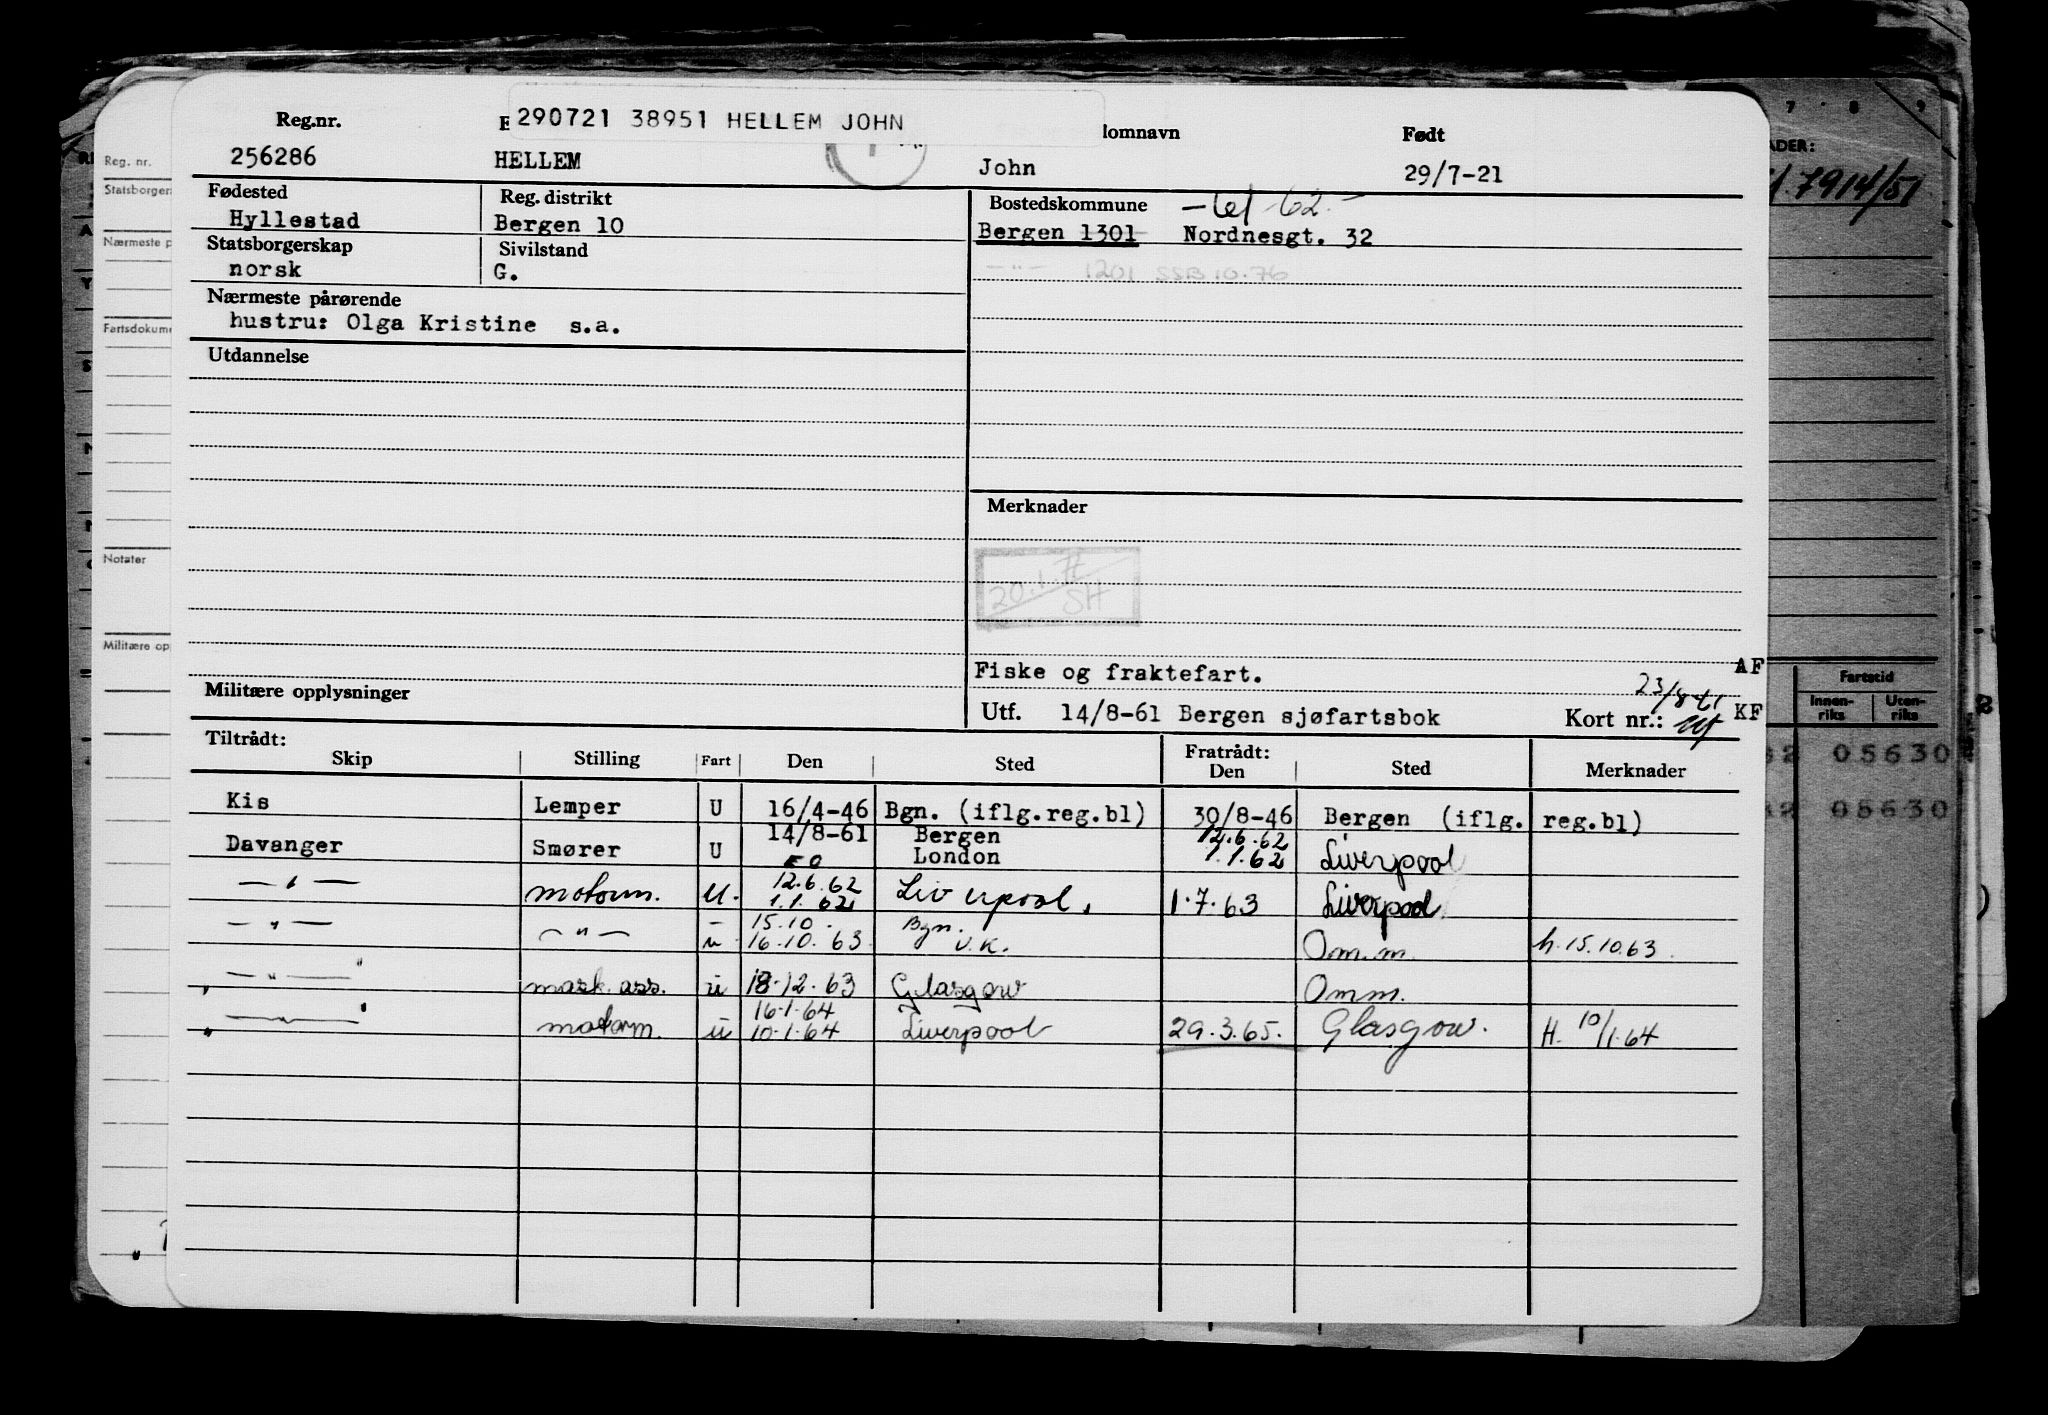 290721 38951 HELLEM JOHN
Reg.nr. lomnavn Født
256286 HELLEM John 29/7-21
Fødested Reg. distrikt Bostedskommune -61 -62-
Hyllestad Bergen 10 Bergen 1301 Nordnesgt. 32
Statsborgerskap Sivilstand
norsk G. 1201 SSB 10.76
Nærmeste pårørende
hustru: Olga Kristine s.a.
Utdannelse
Merknader
20.1.77
SH
Fiske og fraktefart. AF
Militære opplysninger 23/8-61
Utf. 14/8-61 Bergen sjøfartsbok Kort nr.: KF
Tiltrådt: Fratrådt:
Skip Stilling Fart Den Sted Den Sted Merknader
Kis Lemper U 16/4-46 Bgn. (iflg.reg.bl) 30/8-46 Bergen (iflg. reg.bl)
14/8-61 Bergen 12.6.62
Davanger Smører U FO London 1.1.62 Liverpool
— " — motorm. U. 12.6.62 Liverpool. 1.7.63 Liverpool
1.1.62
— " — — " — - 15.10. Bgn.
u 16.10.63 U.K. Om.m. h. 15.10.63
— " — mask. ass. u 18.12.63 Glasgow Omm.
16.1.64
— " — motorm. u 10.1.64 Liverpool 29.3.65. Glasgow. H. 10/1.64
Reg. nr.
Statsborger
Nærmeste p
Fartsdokume
Notater
Militære op
7 8 9
ADER:
7914/51
Fartstid
Innen-
riks
Uten-
riks
05630
05630